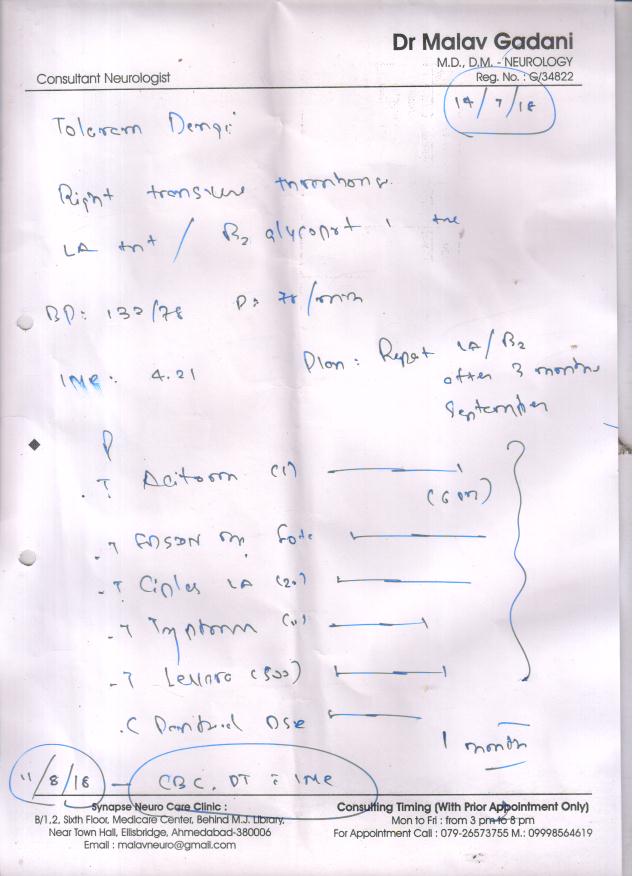 Dr Malav Gadani
M.D., D.M. - NEUROLOGY
Consultant Neurologist
Reg. No. : G/34822
14/7/18
Right transverse thrombosis
LA +nt / B2 glycoprt 1 +ve
BP: 132/78 P: 78/min
INR: 4.21
Plan: Repeat LA/B2
after 3 months
September
T Acitrom (1)
(6 PM)
T
T Ciplar LA (20)
T (10)
T (500)
C DSR
1 month
11/8/18 - CBC, PT & INR
Synapse Neuro Care Clinic :
B/1,2, Sixth Floor, Medicare Center, Behind M.J. Library,
Near Town Hall, Ellisbridge, Ahmedabad-380006
Email : malavneuro@gmail.com
Consulting Timing (With Prior Appointment Only)
Mon to Fri : from 3 pm to 8 pm
For Appointment Call : 079-26573755 M.: 09998564619